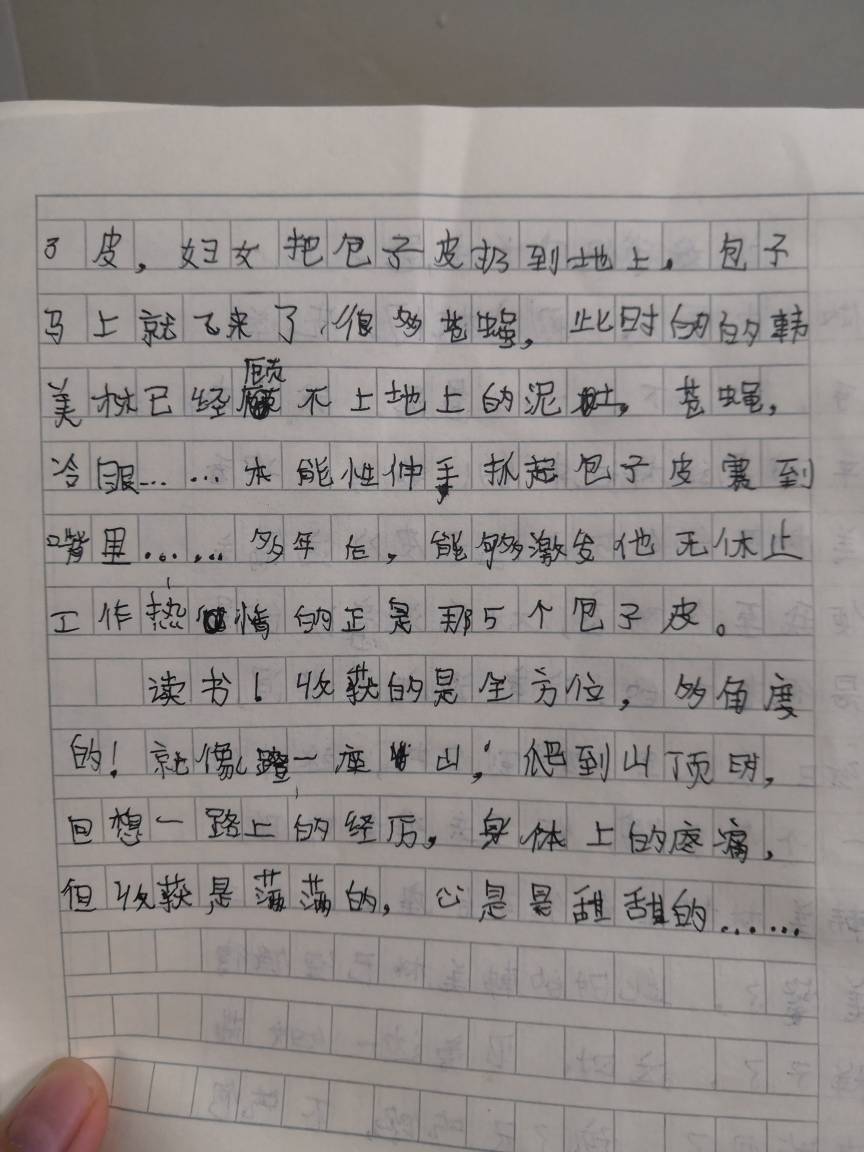 子皮，妇女把包子皮扔到地上，包子
马上就飞来了很多苍蝇，此时的的韩
美林已经顾不上地上的泥土，苍蝇，
冷眼……本能性伸手抓起包子皮塞到
嘴里……多年后，能够激发他无休止
工作热情的正是那5个包子皮。
读书！收获的是全方位，多角度
的！就像蹬一座山，爬到山顶时，
回想一路上的经历，身体上的疼痛，
但收获是满满的，心是是甜甜的……